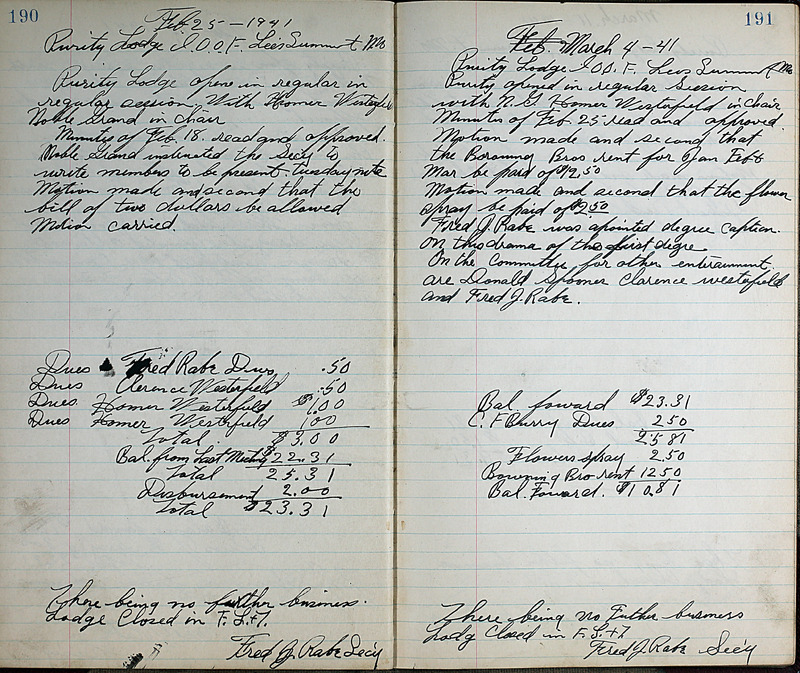 190
Feb 25 - 1941
Purity Lodge I.O.O.F. Lees Summit Mo
Purity Lodge opene in regular in
regular session. With Homer Westerfield
Noble Grand in Chair
Minuts of Feb. 18. read and approved.
Noble Grand instructed the Secy to
write members to be present tuesday nite
Motion made and second that the
bill of two dollars be allowed
Motion carried.
Dues Fred Rabe Dues .50
Dues Clerence Westerfield .50
Dues. Homer Westerfield $1.00
Dues Homer Westerfield 1.00
Total $3.00
Bal. from Last Meeting $22.31
Total 25.31
Disbursement 2.00
Total $23.31
There being no further business.
Lodge Closed in F. L. & T.
Fred J. Rabe Secy
191
Feb. March 4 - 41
Purity Lodge I.O.O.F. Lees Summit Mo
Purity opened in regular Session
with N. G. Homer Westerfield in chair
Minutes of Feb 25 read and approved.
Motion made and second that
the Bowning Bros rent for Jan Feb &
Mar be paid of $12.50
Motion made and second that the flower
spray be paid of $2.50
Fred J. Rabe was apointed degree caption.
On this drama of the first degre
On the Committe for other enterainment,
are Donald Spooner Clarence westerfield
and Fred J. Rabe.
Bal foward $23.31
C. F. Burry Dues 2 50
25 81
Flowers spray 2.50
Bowning Bro rent 12 50
Bal. Foward. $10.81
There being no Futher business
Lodg Closed in F. L. & T
Fred J. Rabe Sec'y